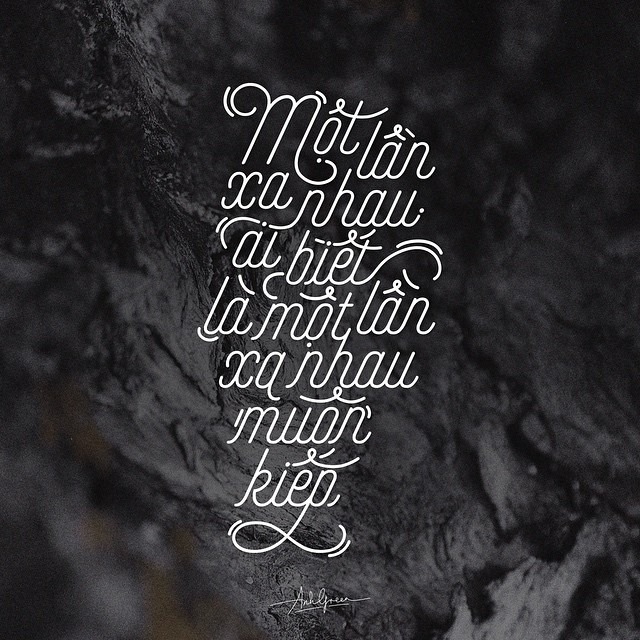 Một lần
xa nhau
ai biết
là một lần
xa nhau
muôn
kiếp
AnhGreen